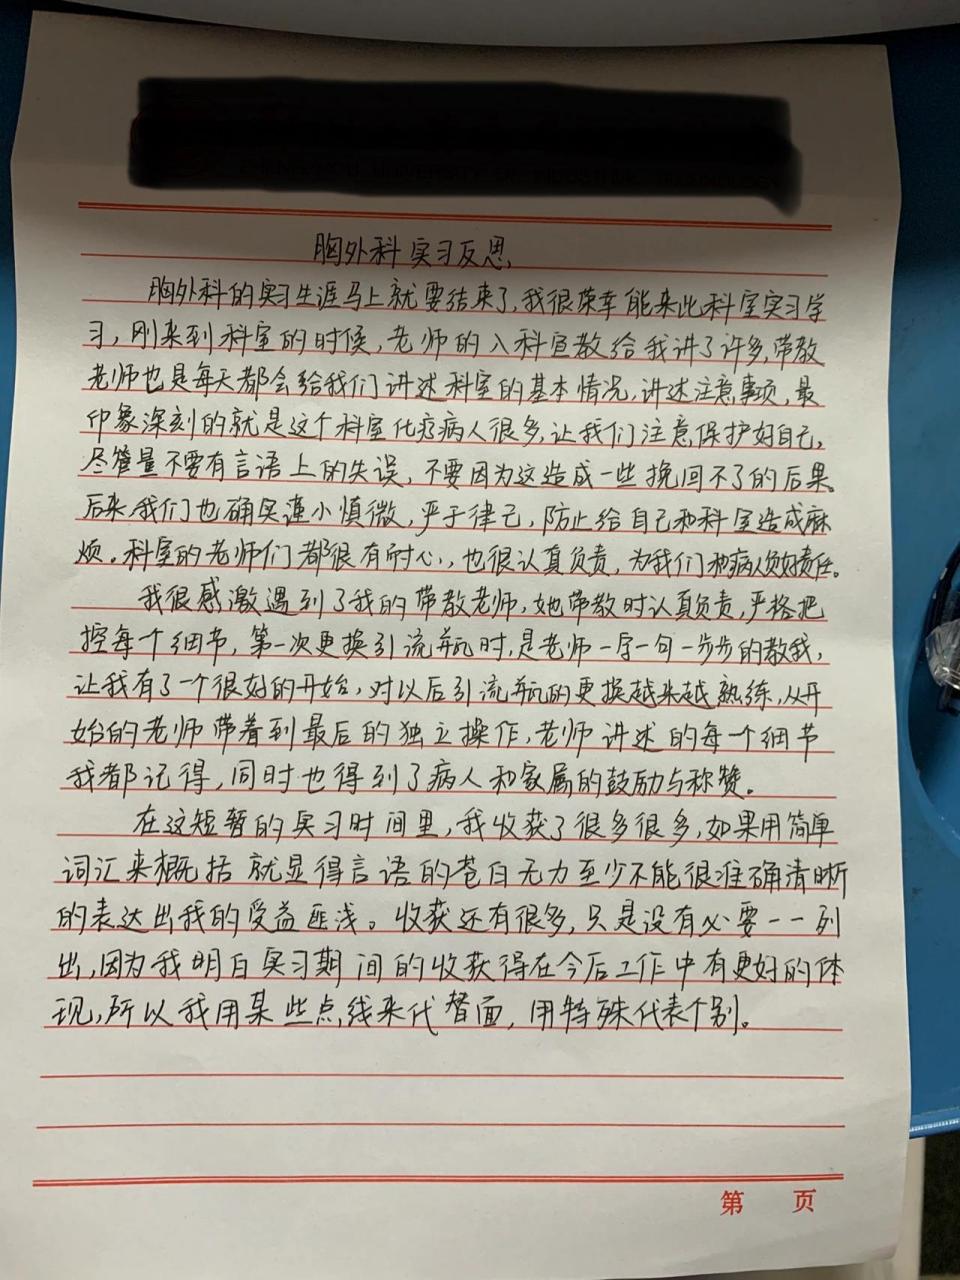 胸外科实习反思
胸外科的实习生涯马上就要结束了,我很荣幸能来此科室实习学
习,刚来到科室的时候,老师的入科宣教给我讲了许多,带教
老师也是每天都会给我们讲述科室的基本情况,讲述注意事项,最
印象深刻的就是这个科室化疗病人很多,让我们注意保护好自己,
尽管量不要有言语上的失误,不要因为这造成一些挽回不了的后果。
后来,我们也确实谨小慎微,严于律己,防止给自己和科室造成麻
烦。科室的老师们都很有耐心,也很认真负责,为我们和病人负好责任。
我很感激遇到了我的带教老师,她带教时认真负责,严格把
控每个细节,第一次更换引流瓶时,是老师一字一句一步步的教我,
让我有了一个很好的开始,对以后引流瓶的更换越来越熟练,从开
始的老师带着到最后的独立操作,老师讲述的每一个细节
我都记得,同时也得到了病人和家属的鼓励与称赞。
在这短暂的实习时间里,我收获了很多很多,如果用简单
词汇来概括就显得言语的苍白无力至少不能很准确清晰
的表达出我的受益匪浅。收获还有很多,只是没有必要一一列
出,因为我明白实习期间的收获得在今后工作中有更好的体
现,所以我用某些点线来代替面,用特殊代表个别。
第 页